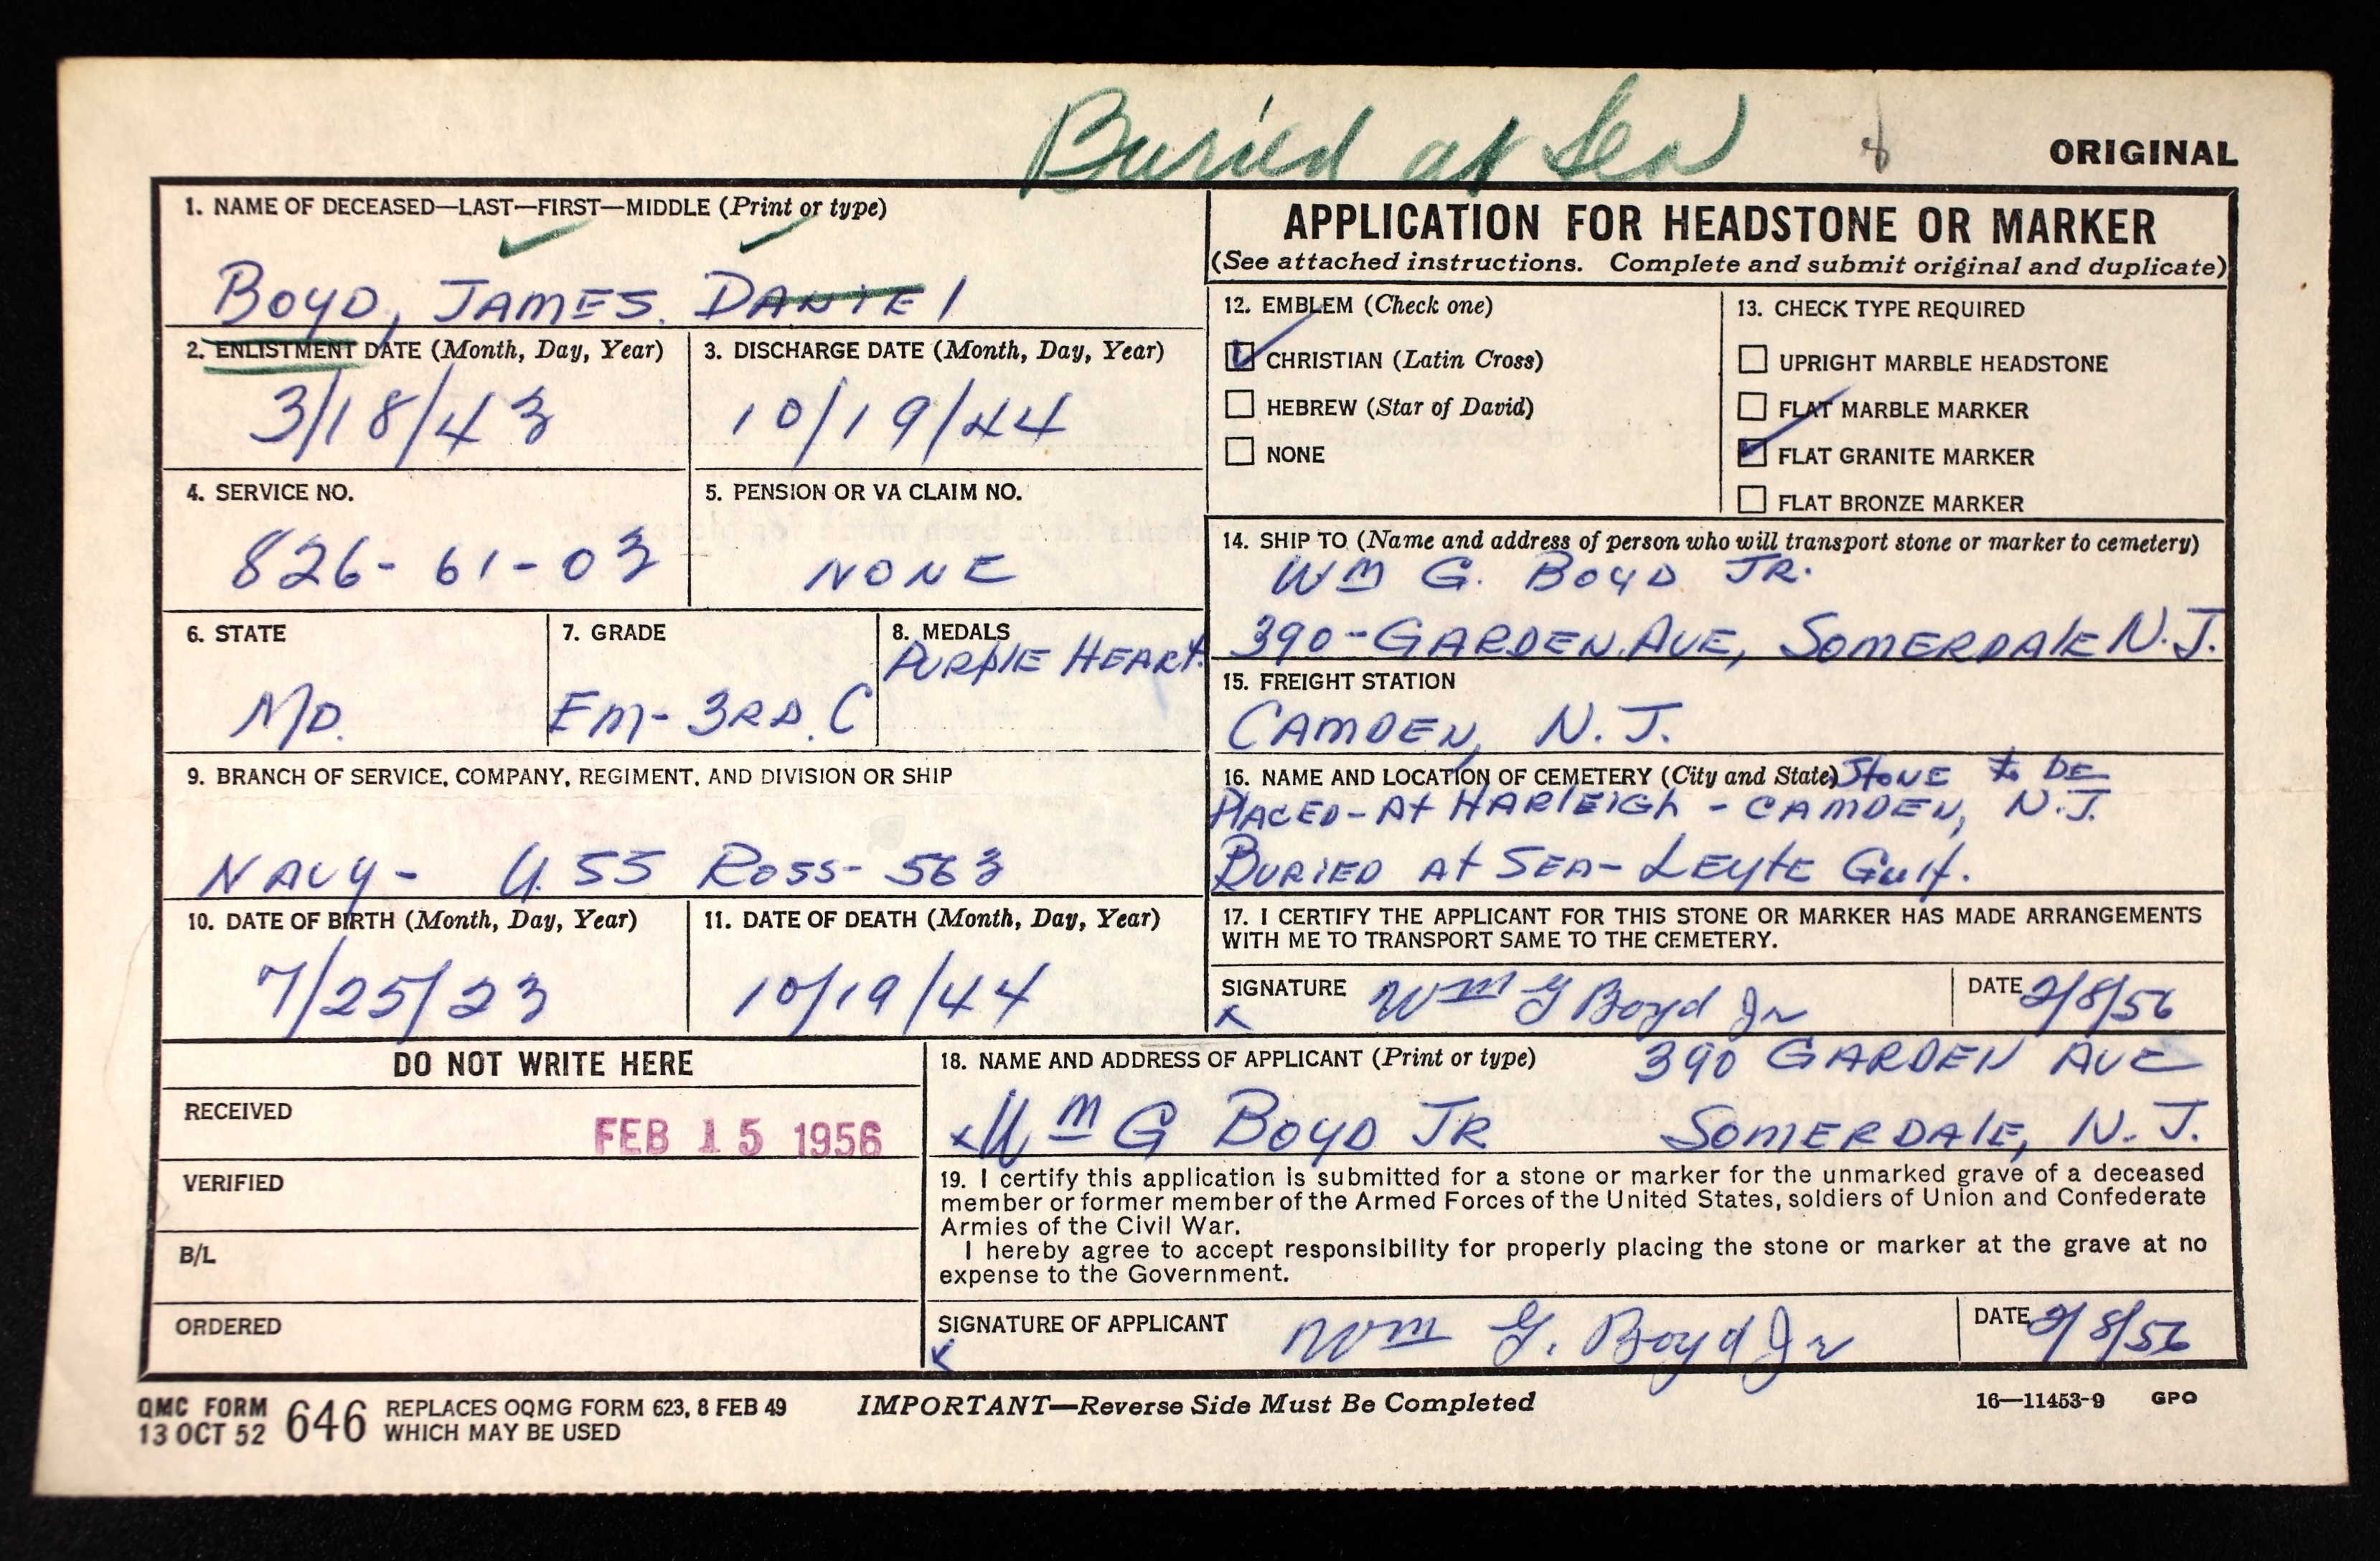 Buried at Sea
ORIGINAL
1. NAME OF DECEASED—LAST—FIRST—MIDDLE (Print or type)
BOYD, JAMES. DANIEl
2. ENLISTMENT DATE (Month, Day, Year)
3/18/43
3. DISCHARGE DATE (Month, Day, Year)
10/19/44
4. SERVICE NO.
826-61-03
5. PENSION OR VA CLAIM NO.
NONE
6. STATE
MD.
7. GRADE
EM-3RD. C
8. MEDALS
PURPlE HEARt.
9. BRANCH OF SERVICE, COMPANY, REGIMENT, AND DIVISION OR SHIP
NAVY- U.SS ROSS-563
10. DATE OF BIRTH (Month, Day, Year)
7/25/23
11. DATE OF DEATH (Month, Day, Year)
10/19/44
APPLICATION FOR HEADSTONE OR MARKER
(See attached instructions. Complete and submit original and duplicate)
12. EMBLEM (Check one)
CHRISTIAN (Latin Cross)
HEBREW (Star of David)
NONE
13. CHECK TYPE REQUIRED
UPRIGHT MARBLE HEADSTONE
FLAT MARBLE MARKER
FLAT GRANITE MARKER
FLAT BRONZE MARKER
14. SHIP TO (Name and address of person who will transport stone or marker to cemetery)
WM G. BOYD JR.
390-GARDEN AVE, SOMERDAlE N.J.
15. FREIGHT STATION
CAMDEN, N.J.
16. NAME AND LOCATION OF CEMETERY (City and State) StONE to BE
PlACED-At HARlEIGh - CAMDEN, N.J.
BURIED At SEA-LEYtE Gulf.
17. I CERTIFY THE APPLICANT FOR THIS STONE OR MARKER HAS MADE ARRANGEMENTS
WITH ME TO TRANSPORT SAME TO THE CEMETERY.
SIGNATURE Wm G Boyd Jr
x
DATE 2/8/56
DO NOT WRITE HERE
RECEIVED
FEB 15 1956
VERIFIED
B/L
ORDERED
18. NAME AND ADDRESS OF APPLICANT (Print or type) 390 GARDEN AVE
x WM G BOYD JR SOMERDAlE, N.J.
19. I certify this application is submitted for a stone or marker for the unmarked grave of a deceased
member or former member of the Armed Forces of the United States, soldiers of Union and Confederate
Armies of the Civil War.
I hereby agree to accept responsibility for properly placing the stone or marker at the grave at no
expense to the Government.
SIGNATURE OF APPLICANT Wm G. Boyd Jr
x
DATE 2/8/56
QMC FORM
13 OCT 52 646
REPLACES OQMG FORM 623, 8 FEB 49
WHICH MAY BE USED
IMPORTANT—Reverse Side Must Be Completed
16—11453-9 GPO